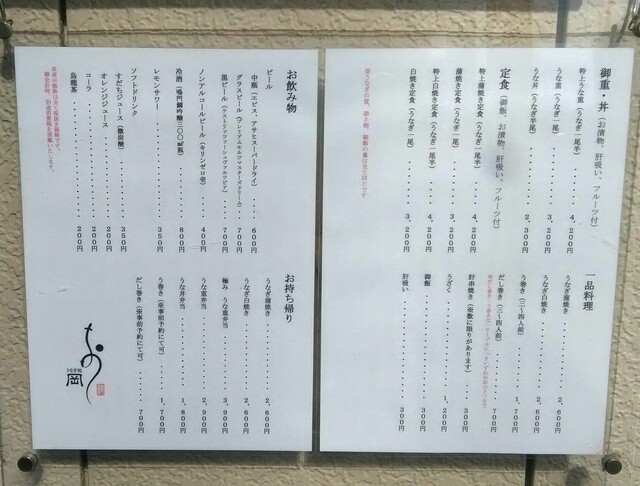 御重・丼（お漬物、肝吸い、フルーツ付）
特上うな重（うなぎ一尾半）・・・・・・・4,200円
うな重（うなぎ一尾）・・・・・・・3,200円
うな丼（うなぎ半尾）・・・・・・・2,300円
定食（御飯、お漬物、肝吸い、フルーツ付）
特上蒲焼き定食（うなぎ一尾半）・・・・・4,200円
蒲焼き定食（うなぎ一尾）・・・・・・・3,200円
特上白焼き定食（うなぎ一尾半）・・・・・4,200円
白焼き定食（うなぎ一尾）・・・・・・・3,200円
一品料理
うなぎ蒲焼き・・・・・・・2,600円
うなぎ白焼き・・・・・・・2,600円
う巻き（三～四人前）・・・・・・・1,700円
だし巻き（三～四人前）・・・・・・・700円
肝串焼き（※数に限りがあります）・・・・300円
うざく・・・・・・・1,200円
御飯・・・・・・・300円
肝吸い・・・・・・・300円
お飲み物
ビール
中瓶（エビス、アサヒスーパードライ）・・・600円
グラスビール（プレミアムモルツマスターズドリーム）・・700円
黒ビール・・・700円
ノンアルコールビール（キリンゼロイチ）・・・400円
冷酒（鳴門鯛吟醸三〇〇ml瓶）・・・・800円
レモンサワー・・・・・・・350円
ソフトドリンク
すだちジュース（微炭酸）・・・・・350円
オレンジジュース・・・・・・・200円
コーラ・・・・・・・200円
烏龍茶・・・・・・・200円
お持ち帰り
うなぎ蒲焼き・・・・・・・2,600円
うなぎ白焼き・・・・・・・2,600円
極み うな重弁当・・・・・・・3,900円
うな重弁当・・・・・・・2,900円
うな丼弁当・・・・・・・1,800円
う巻き（※事前予約にて可）・・・・・1,700円
だし巻き（※事前予約にて可）・・・・・700円
岡